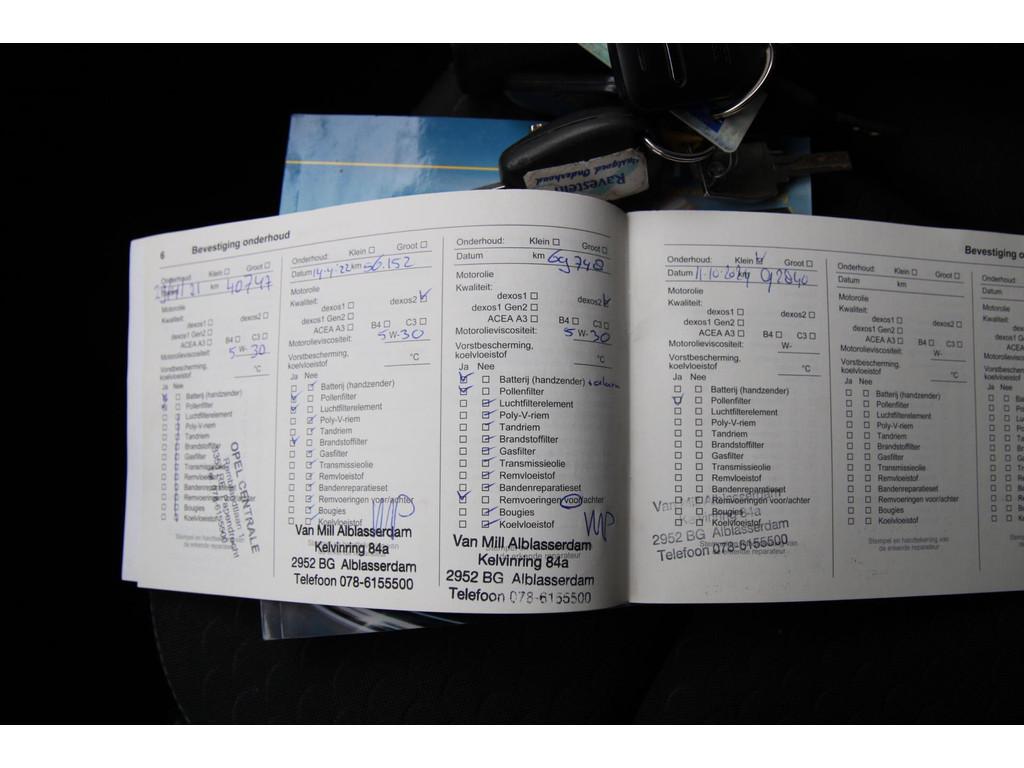 Ravesteijn
Vastgoed Onderhoud
6
Bevestiging onderhoud
Onderhoud: Klein ☐ Groot ☐
21 km 40747
Motorolie
Kwaliteit:
dexos1 ☐ dexos2 ☐
dexos1 Gen2 ☐
ACEA A3 ☐ B4 ☐ C3 ☐
Motorolieviscositeit: 5 W- 30
Vorstbescherming,
koelvloeistof °C
Ja Nee
Batterij (handzender)
Pollenfilter
Luchtfilterelement
Poly-V-riem
Tandriem
Brandstoffilter
Gasfilter
Transmissieolie
Remvloeistof
Bandenreparatieset
Remvoeringen voor/achter
Bougies
Koelvloeistof
OPEL CENTRALE
Stempel en handtekening van
de erkende reparateur
Onderhoud: Klein ☐ Groot ☐
Datum 14-4-'22 km 56.152
Motorolie
Kwaliteit:
dexos1 ☐ dexos2 ☑
dexos1 Gen2 ☐
ACEA A3 ☐ B4 ☐ C3 ☐
Motorolieviscositeit: 5 W-30
Vorstbescherming,
koelvloeistof °C
Ja Nee
Batterij (handzender)
Pollenfilter
Luchtfilterelement
Poly-V-riem
Tandriem
Brandstoffilter
Gasfilter
Transmissieolie
Remvloeistof
Bandenreparatieset
Remvoeringen voor/achter
Bougies
Koelvloeistof
Van Mill Alblasserdam
Kelvinring 84a
2952 BG Alblasserdam
Telefoon 078-6155500
Onderhoud: Klein ☐ Groot ☐
Datum km 69748
Motorolie
Kwaliteit:
dexos1 ☐ dexos2 ☑
dexos1 Gen2 ☐
ACEA A3 ☐ B4 ☐ C3 ☐
Motorolieviscositeit: 5 W-30
Vorstbescherming,
koelvloeistof °C
Ja Nee
Batterij (handzender)
Pollenfilter
Luchtfilterelement
Poly-V-riem
Tandriem
Brandstoffilter
Gasfilter
Transmissieolie
Remvloeistof
Bandenreparatieset
Remvoeringen voor/achter
Bougies
Koelvloeistof
Van Mill Alblasserdam
Kelvinring 84a
2952 BG Alblasserdam
Telefoon 078-6155500
Bevestiging o
Onderhoud: Klein ☑ Groot ☐
Datum 11-10-2024 92840
Motorolie
Kwaliteit:
dexos1 ☐ dexos2 ☐
dexos1 Gen2 ☐
ACEA A3 ☐ B4 ☐ C3 ☐
Motorolieviscositeit: W-
Vorstbescherming,
koelvloeistof °C
Ja Nee
Batterij (handzender)
Pollenfilter
Luchtfilterelement
Poly-V-riem
Tandriem
Brandstoffilter
Gasfilter
Transmissieolie
Remvloeistof
Bandenreparatieset
Remvoeringen voor/achter
Bougies
Koelvloeistof
Van Mill Alblasserdam
Kelvinring 84a
2952 BG Alblasserdam
Telefoon 078-6155500
Onderhoud: Klein ☐ Groot ☐
Datum km
Motorolie
Kwaliteit:
dexos1 ☐ dexos2 ☐
dexos1 Gen2 ☐
ACEA A3 ☐ B4 ☐ C3 ☐
Motorolieviscositeit: W-
Vorstbescherming,
koelvloeistof °C
Ja Nee
Batterij (handzender)
Pollenfilter
Luchtfilterelement
Poly-V-riem
Tandriem
Brandstoffilter
Gasfilter
Transmissieolie
Remvloeistof
Bandenreparatieset
Remvoeringen voor/achter
Bougies
Koelvloeistof
Stempel en handtekening van
de erkende reparateur
Onderhoud:
Datum
Motorolie
Kwaliteit:
dexos1
dexos1 Gen2
ACEA A3
Motorolieviscos
Vorstbescherm
koelvloeistof
Ja Nee
Batte
Polle
Luch
Poly
Tan
Bra
Ga
Tra
Re
Ba
Re
Bo
Ko